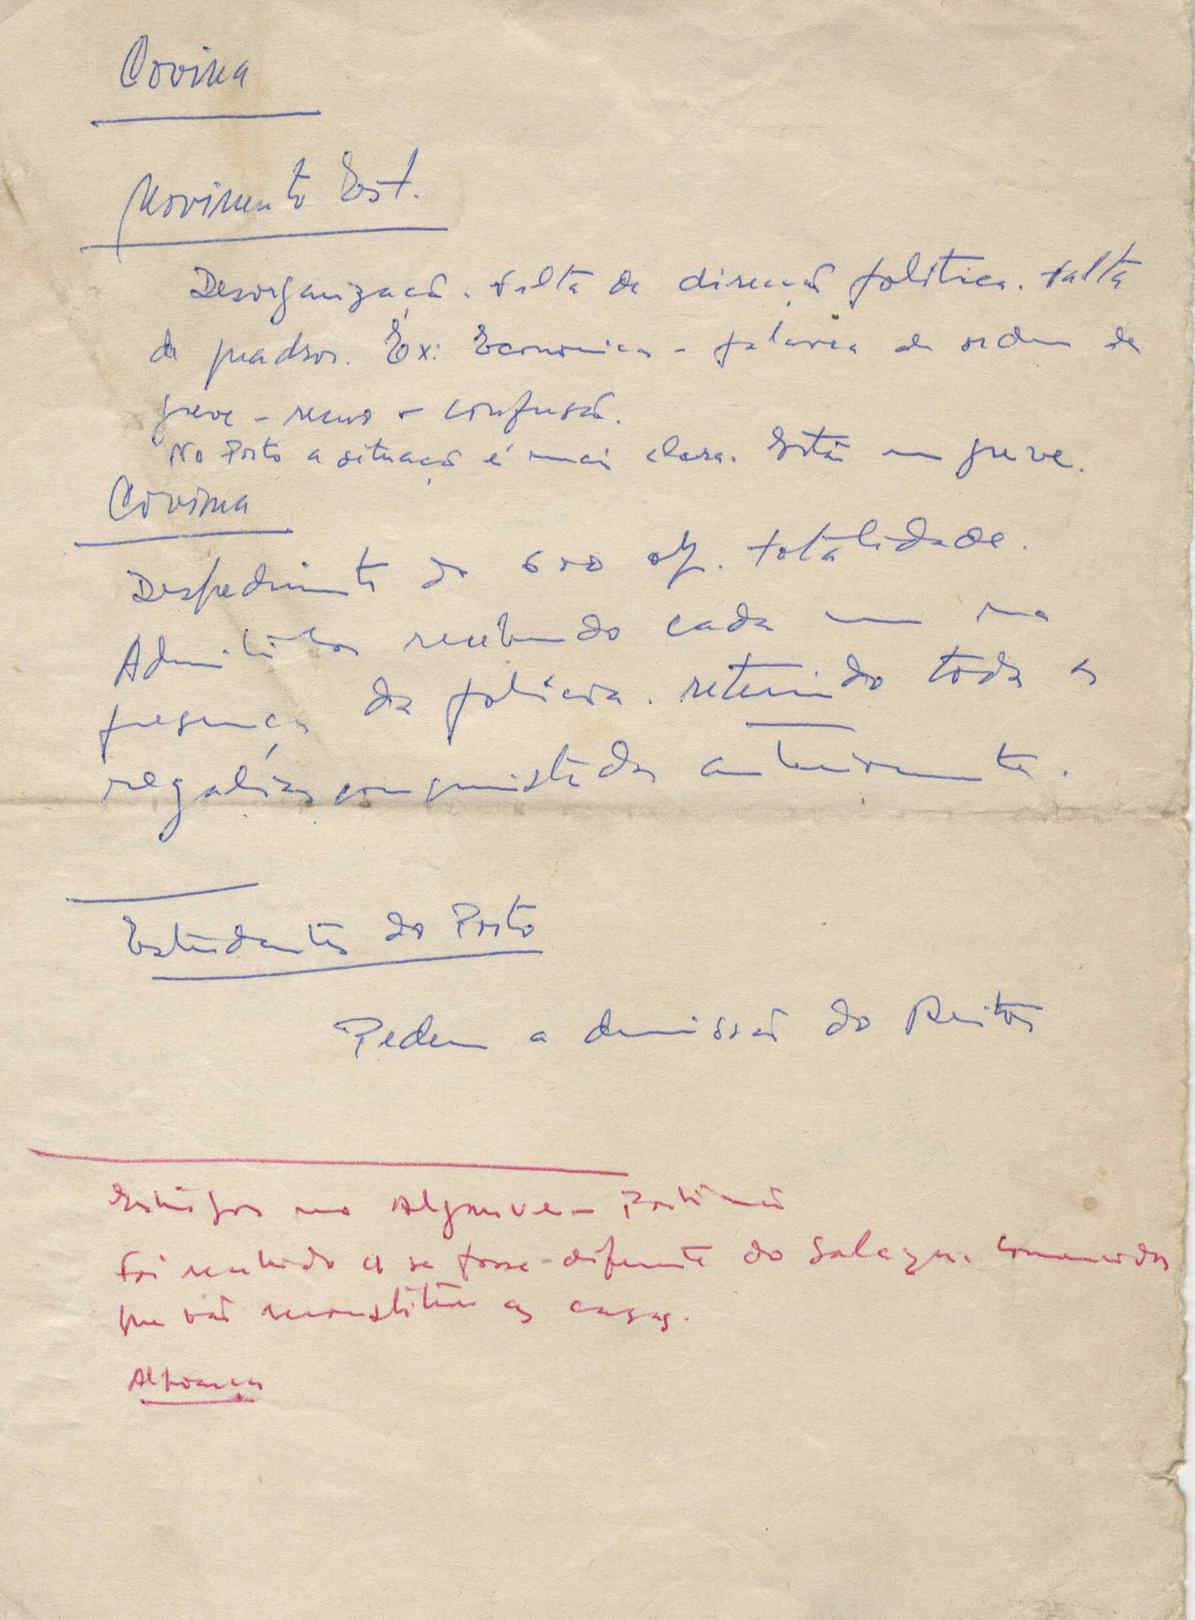 Covina
Movimento Est.
Desorganização. Falta de direcção politica. Falta
de quadros. Ex: Economicas - palavra de ordem de
greve - recuo - confusão.
No Porto a situação é mais clara. Estão em greve.
Covina
Despedimento de 600 op. totalidade.
Admitidos recebendo cada um na
presença da policia. retirando toda as
regalias conquistadas anteriormente.
Estudantes do Porto
Pedem a demissão do Reitor
no Algarve - Portimão
Foi recebido se fosse diferente do Salazar. Convencidos
que vão reconstituir as casas.